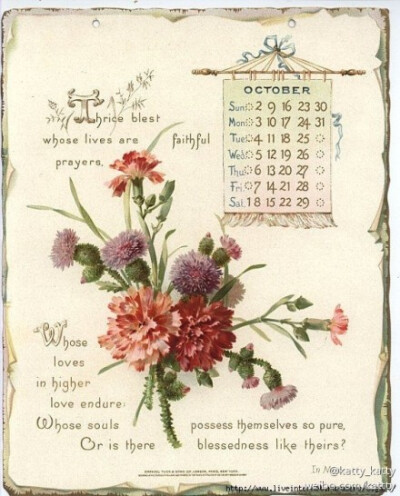 Thrice blest
whose lives are faithful
prayers,
OCTOBER
Sun. 2 9 16 23 30
Mon. 3 10 17 24 31
Tue. 4 11 18 25
Wed. 5 12 19 26
Thu. 6 13 20 27
Fri. 7 14 21 28
Sat. 1 8 15 22 29
Whose
loves
in higher
love endure:
Whose souls possess themselves so pure,
Or is there blessedness like theirs?
In
@katty_katty
weibo.com/katty